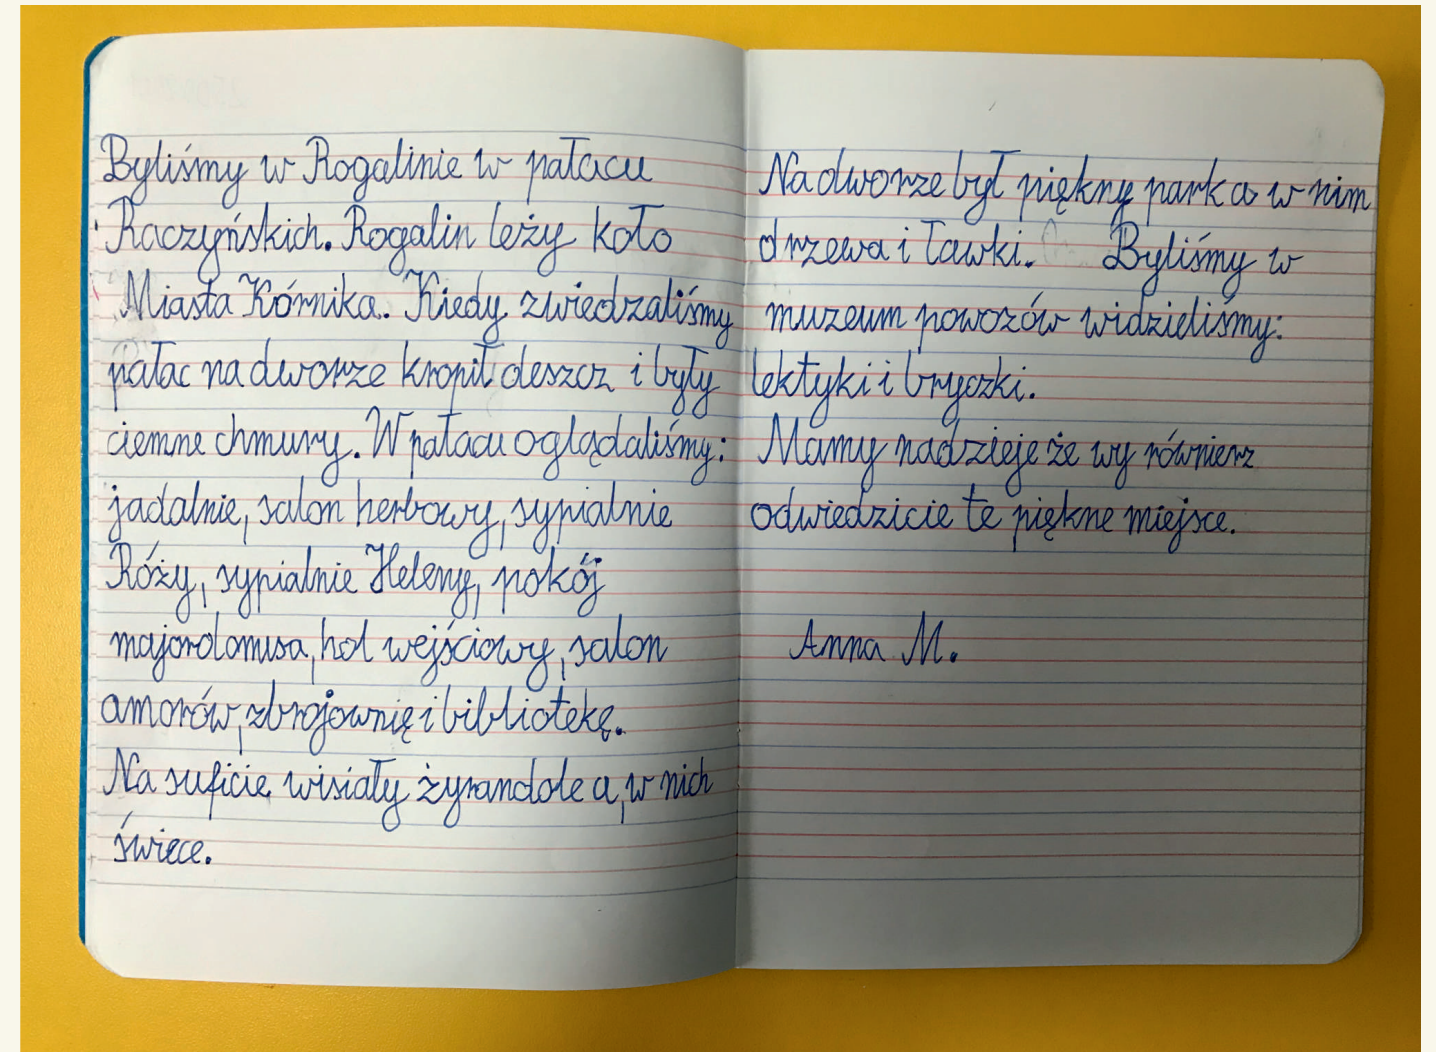 Byliśmy w Rogalinie w pałacu
Raczyńskich. Rogalin leży koło
Miasta Kórnika. Kiedy zwiedzaliśmy
pałac na dworze kropił deszcz i były
ciemne chmury. W pałacu oglądaliśmy:
jadalnie, salon herbowy, sypialnie
Róży, sypialnie Heleny, pokój
majordomusa, hol wejściowy, salon
amorów, zbrojownię i bibliotekę.
Na suficie wisiały żyrandole a, w nich
świece.
Na dworze był piękny park a w nim
drzewa i ławki. Byliśmy w
muzeum powozów widzieliśmy:
lektyki i bryczki.
Mamy nadzieje że wy równierz
odwiedzicie te piękne miejsce.
Anna M.